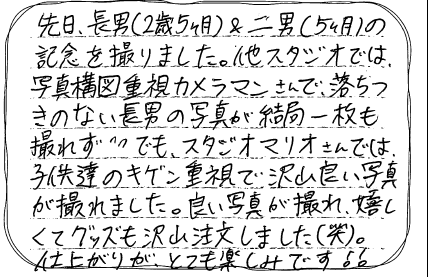 先日、長男(2歳5ヶ月)&二男(5ヶ月)の
記念を撮りました。他スタジオでは、
写真構図重視カメラマンさんで、落ちつ
きのない長男の写真が結局一枚も
撮れず〃でも、スタジオマリオさんでは、
子供達のキゲン重視で沢山良い写真
が撮れました。良い写真が撮れ、嬉し
くてグッズも沢山注文しました(笑)。
仕上がりが、とても楽しみです。。